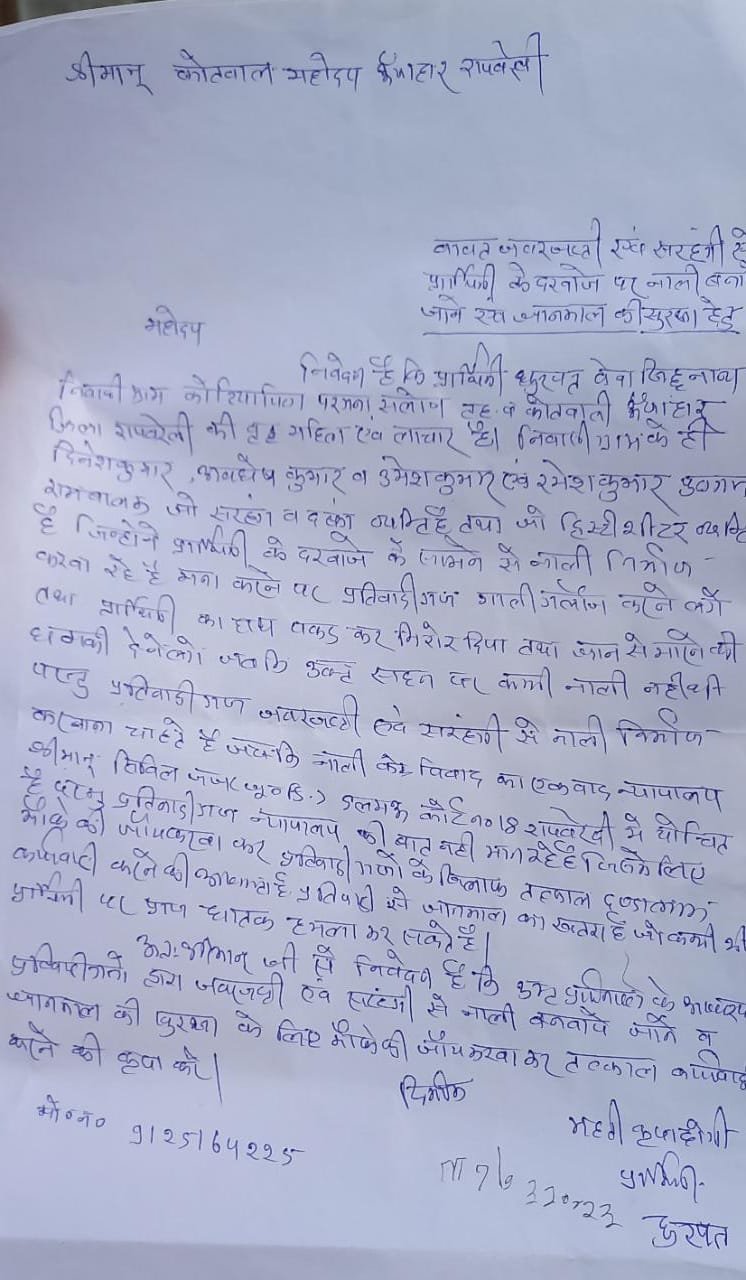 श्रीमान् कोतवाल महोदय ऊँचाहार रायबरेली
बावत जवरजस्ती एवं सरहंगी से
प्रार्थिनी के दरवाजे पर नाली बना
जाने एवं जानमाल की सुरक्षा हेतु
महोदय
निवेदन है कि प्रार्थिनी धुरपत बेवा
निवासी ग्राम परगना सलोन तह० व कोतवाली ऊँचाहार
जिला रायबरेली की वृद्ध महिला एवं लाचार है। निवासी ग्राम के ही
दिनेशकुमार, अवधेष कुमार व उमेशकुमार एवं रमेशकुमार पुत्रगण
रामबालक जो सरहंग व दबंग व्यक्ति है तथा जो हिस्ट्रीशीटर व्यक्ति
है जिन्होने प्रार्थिनी के दरवाजे के सामने से नाली निर्माण
करवा रहे है मना करने पर प्रतिवादीगण गाली गलौज करने लगे
तथा प्रार्थिनी का हाथ पकड कर मिरोर दिया तथा जान से मारने की
धमकी देने लगे जबकि उक्त स्थान पर कभी नाली नही थी
परन्तु प्रतिवादीगण जवरजस्ती एवं सरहंगी से नाली निर्माण
करवाना चाहते है जबकि नाली के विवाद का एक वाद न्यायालय
श्रीमान् सिविल जज (जू० डि०) डलमऊ कोर्ट न० 18 रायबरेली मे योजित
है परन्तु प्रतिवादीगण न्यायालय की बात नही मान रहे है जिसके लिए
मौके की जाँच करवा कर प्रतिवादीगणो के खिलाफ तत्काल दण्डात्मक
कार्यवाही करने की आवश्यकता है प्रतिवादी से जानमाल का खतरा है जो कभी भी
प्रार्थिनी पर प्राण घातक हमला कर सकते है।
अतः श्रीमान् जी से निवेदन है कि उक्त के
द्वारा जवरजस्ती एवं सरहंगी से नाली बनवाये जाने व
जानमाल की सुरक्षा के लिए मौके की जाँच करवा कर तत्काल कार्यवाही
करने की कृपा करें।
दिनाँक
महती कृपा होगी
मो० न० 9125164225
प्रार्थिनी
धुरपत